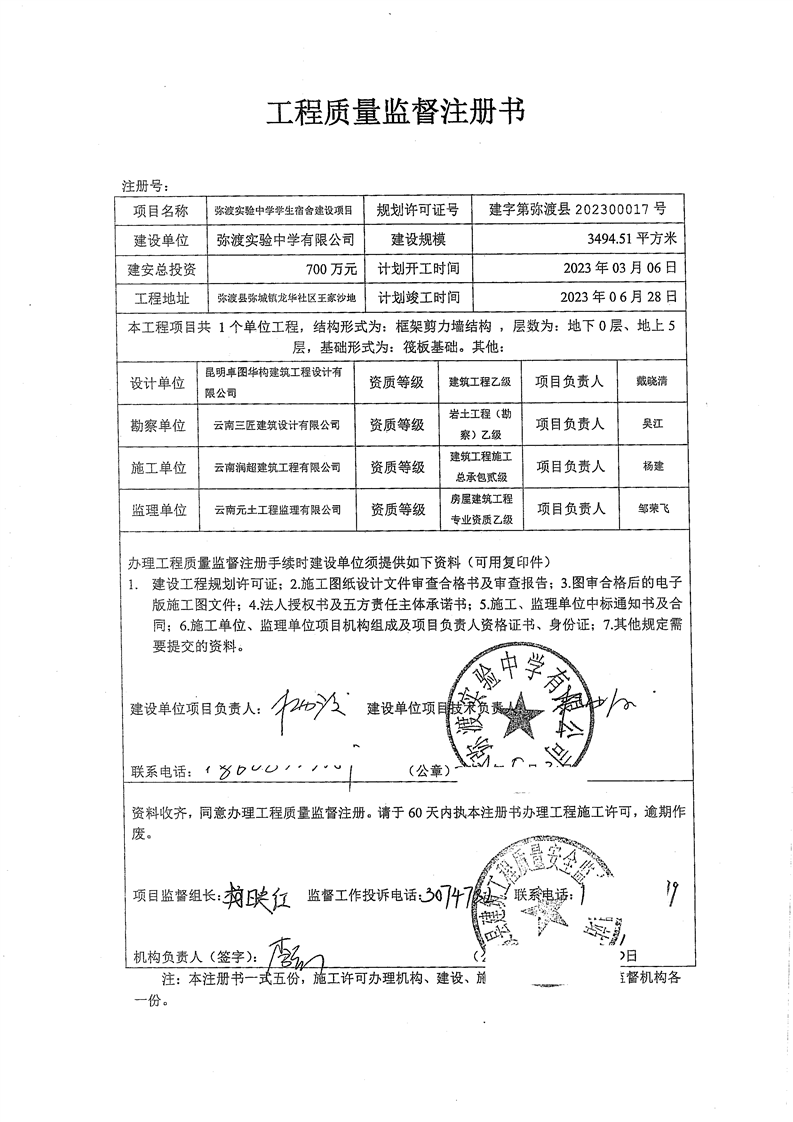 工程质量监督注册书
注册号：
项目名称 弥渡实验中学学生宿舍建设项目 规划许可证号 建字第弥渡县 202300017 号
建设单位 弥渡实验中学有限公司 建设规模 3494.51 平方米
建安总投资 700 万元 计划开工时间 2023 年 03 月 06 日
工程地址 弥渡县弥城镇龙华社区王家沙地 计划竣工时间 2023 年 0 6 月 28 日
本工程项目共 1 个单位工程，结构形式为：框架剪力墙结构 ，层数为：地下 0 层、地上 5
层，基础形式为：筏板基础。其他：
设计单位 昆明卓图华构建筑工程设计有
限公司 资质等级 建筑工程乙级 项目负责人 戴晓清
勘察单位 云南三匠建筑设计有限公司 资质等级 岩土工程（勘
察）乙级 项目负责人 吴江
施工单位 云南润超建筑工程有限公司 资质等级 建筑工程施工
总承包贰级 项目负责人 杨建
监理单位 云南元土工程监理有限公司 资质等级 房屋建筑工程
专业资质乙级 项目负责人 邹荣飞
办理工程质量监督注册手续时建设单位须提供如下资料（可用复印件）
1. 建设工程规划许可证；2.施工图纸设计文件审查合格书及审查报告；3.图审合格后的电子
版施工图文件；4.法人授权书及五方责任主体承诺书；5.施工、监理单位中标通知书及合
同；6.施工单位、监理单位项目机构组成及项目负责人资格证书、身份证；7.其他规定需
要提交的资料。
弥渡实验中学有限公司
建设单位项目负责人： 建设单位项目技术负责人
联系电话： （公章）
资料收齐，同意办理工程质量监督注册。请于 60 天内执本注册书办理工程施工许可，逾期作
废。
县建筑工程质量安全监
项目监督组长： 监督工作投诉电话： 联系电话： 19
机构负责人（签字）： 日
注：本注册书一式五份，施工许可办理机构、建设、施 监督机构各
一份。